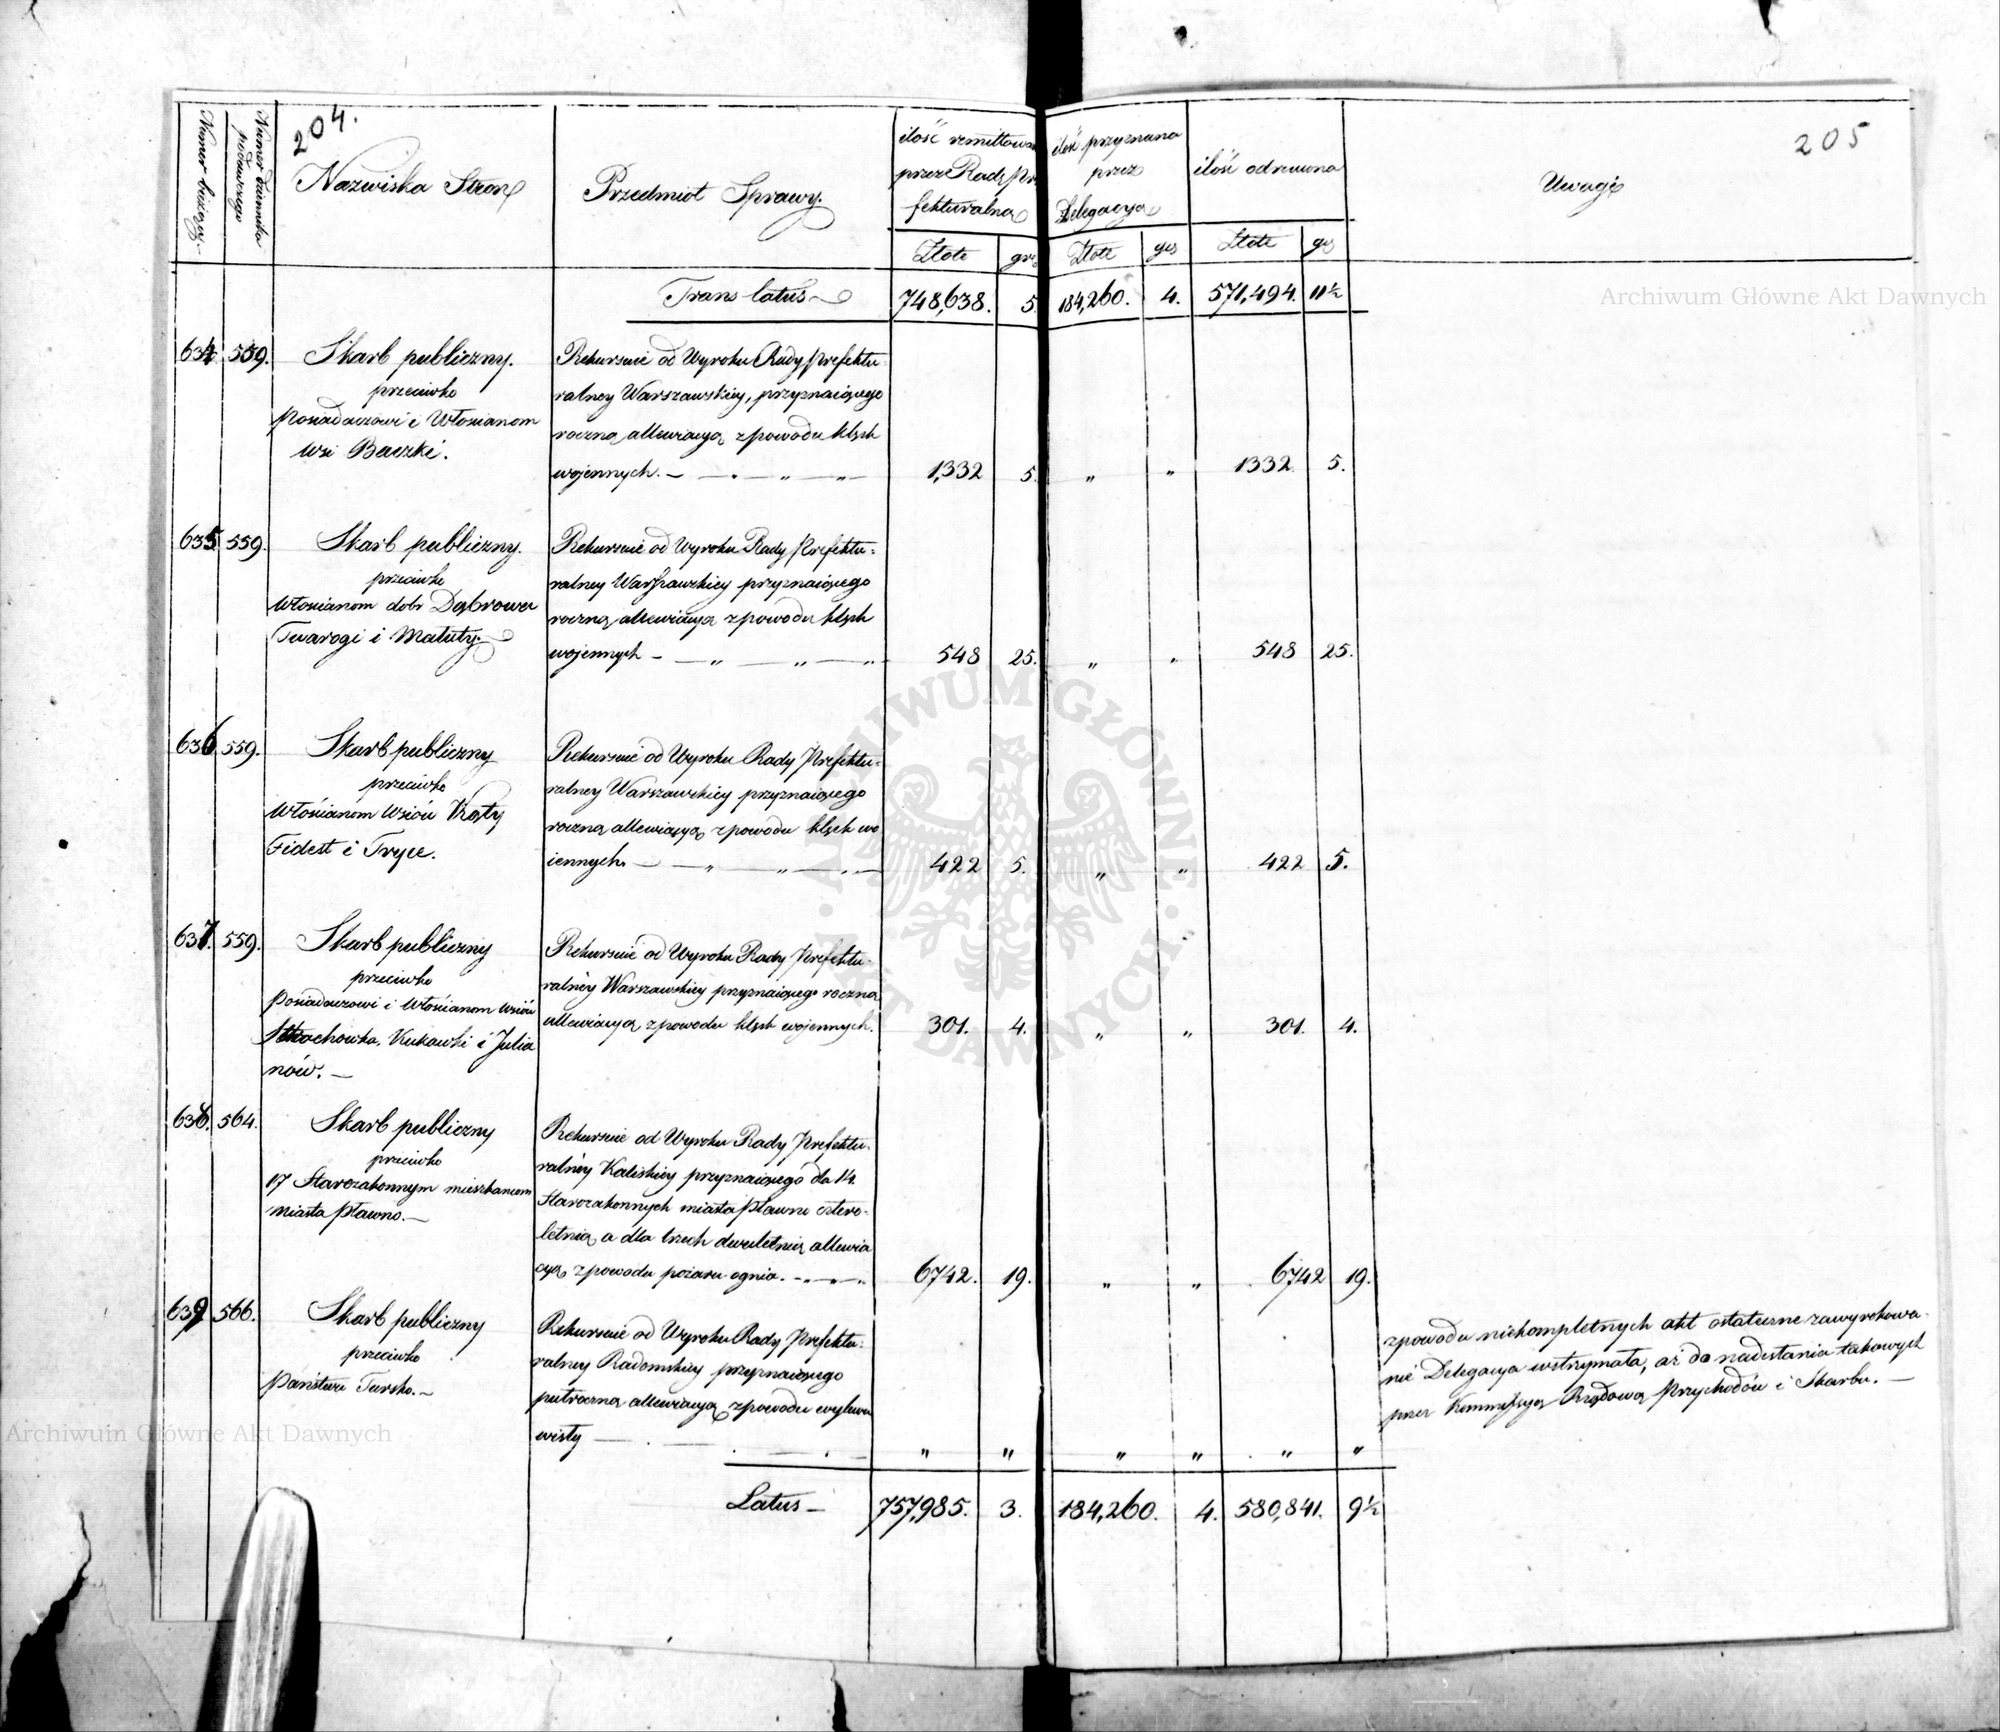 204.
205
Numer bieżący.
Numer dziennika
podawczego
Nazwiska Stron
Przedmiot Sprawy.
ilość remittowa
przez Radę Pre
fekturalną
ilość przyznana
przez
Delegacyą
ilość odrzucona
Uwagi
Złote
gr.
Złote
gr
Złote
gr
Trans latus 748,638. 5. 184,260. 4. 571,494. 11½
634. 559. Skarb publiczny.
przeciwko
Posiadaczowi i Włościanom
Wsi Baczki.
Rekursuie od Wyroku Rady Prefektu-
ralney Warszawskiey, przyznaiącego
roczną allewiacyą z powodu klęsk
wojennych. — — „ — „
1,332 5. „ „ 1332. 5.
635. 559. Skarb publiczny.
przeciwko
Włościanom dobr Dąbrowa
Twarogi i Matuty.
Rekursuie od Wyroku Rady Prefektu-
ralney Warszawskiey przyznaiącego
roczną allewiacyą z powodu klęsk
wojennych — — „ — „ — „
548 25. „ „ 548 25.
636. 559. Skarb publiczny
przeciwko
Włościanom Wsiów Kąty
Fidest i Tryce.
Rekursuie od Wyroku Rady Prefektu-
ralney Warszawskiey przyznaiącego
roczną allewiacyą z powodu klęsk wo
iennych. — „ — „ —
422 5. „ „ 422 5.
637. 559. Skarb publiczny
przeciwko
Posiadaczowi i Włościanom Wsiów
Kukawki i Julia
nów. —
Rekursuie od Wyroku Rady Prefektu-
ralnéy Warszawskiey przyznaiącego roczną
allewiacyą z powodu klęsk wojennych.
301. 4. „ „ 301. 4.
638. 564. Skarb publiczny
przeciwko
17 Starozakonnym mieszkancom
Miasta Pławno. —
Rekursuie od Wyroku Rady Prefektu-
ralnéy Kaliskiey przyznaiącego dla 14
Starozakonnych miasta Pławna cztero-
letnią, a dla trzech dwuletnią allewia
cyą z powodu pożaru ognia. — „ — „
6742. 19. „ „ 6742 19.
639 566. Skarb publiczny
przeciwko
Państwu Tursko. —
Rekursuie od Wyroku Rady Prefektu-
ralney Radomskiey przyznaiącego
putroczną allewiacyą z powodu wylewu
wisły —
„ „ „ „ „ „
z powodu niekompletnych akt ostateczne zawyrokowa-
nie Delegacya wstrzymała, aż do nadesłania takowych
przez Kommissyą Rządową Przychodów i Skarbu. —
Latus — 757,985. 3. 184,260. 4. 580,841. 9½
Archiwum Główne Akt Dawnych
Archiwum Główne Akt Dawnych
ARCHIWUM GŁÓWNE AKT DAWNYCH